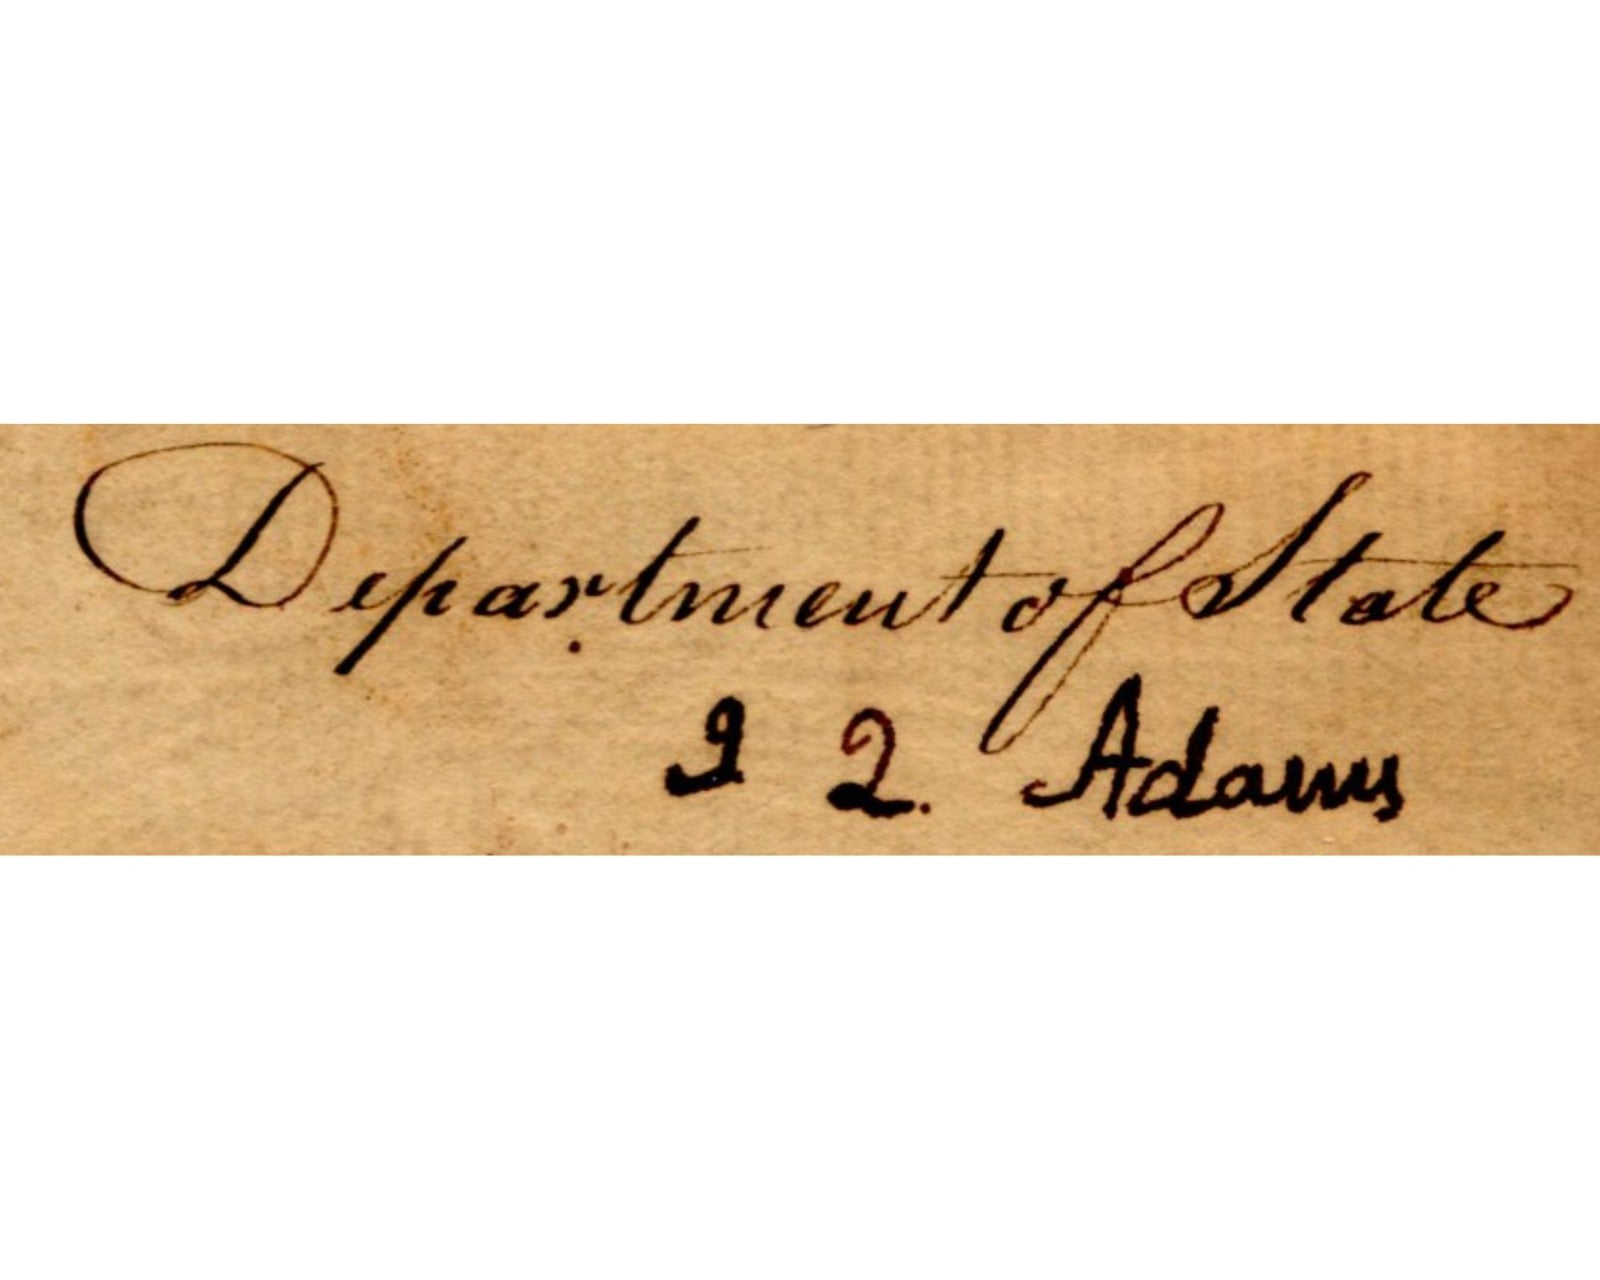 Department of State
J Q. Adams